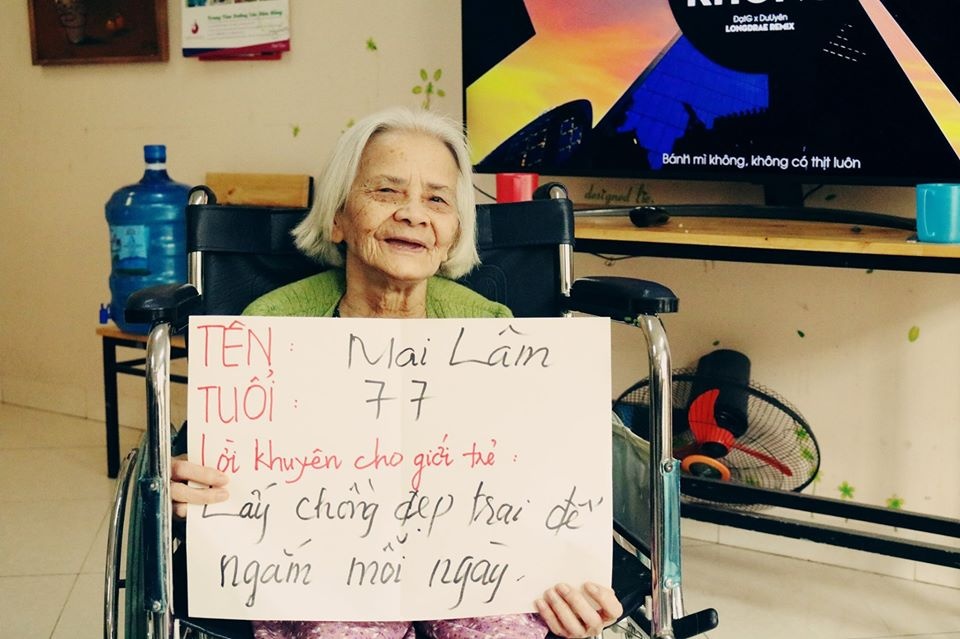 Trung Tâm Dưỡng Lão Diên Hồng
ĐạtG x DuUyên
LONGDRAE REMIX
Bánh mì không, không có thịt luôn
designed to
TÊN : Mai Lâm
TUỔI : 77
Lời khuyên cho giới trẻ :
Lấy chồng đẹp trai để
ngắm mỗi ngày.